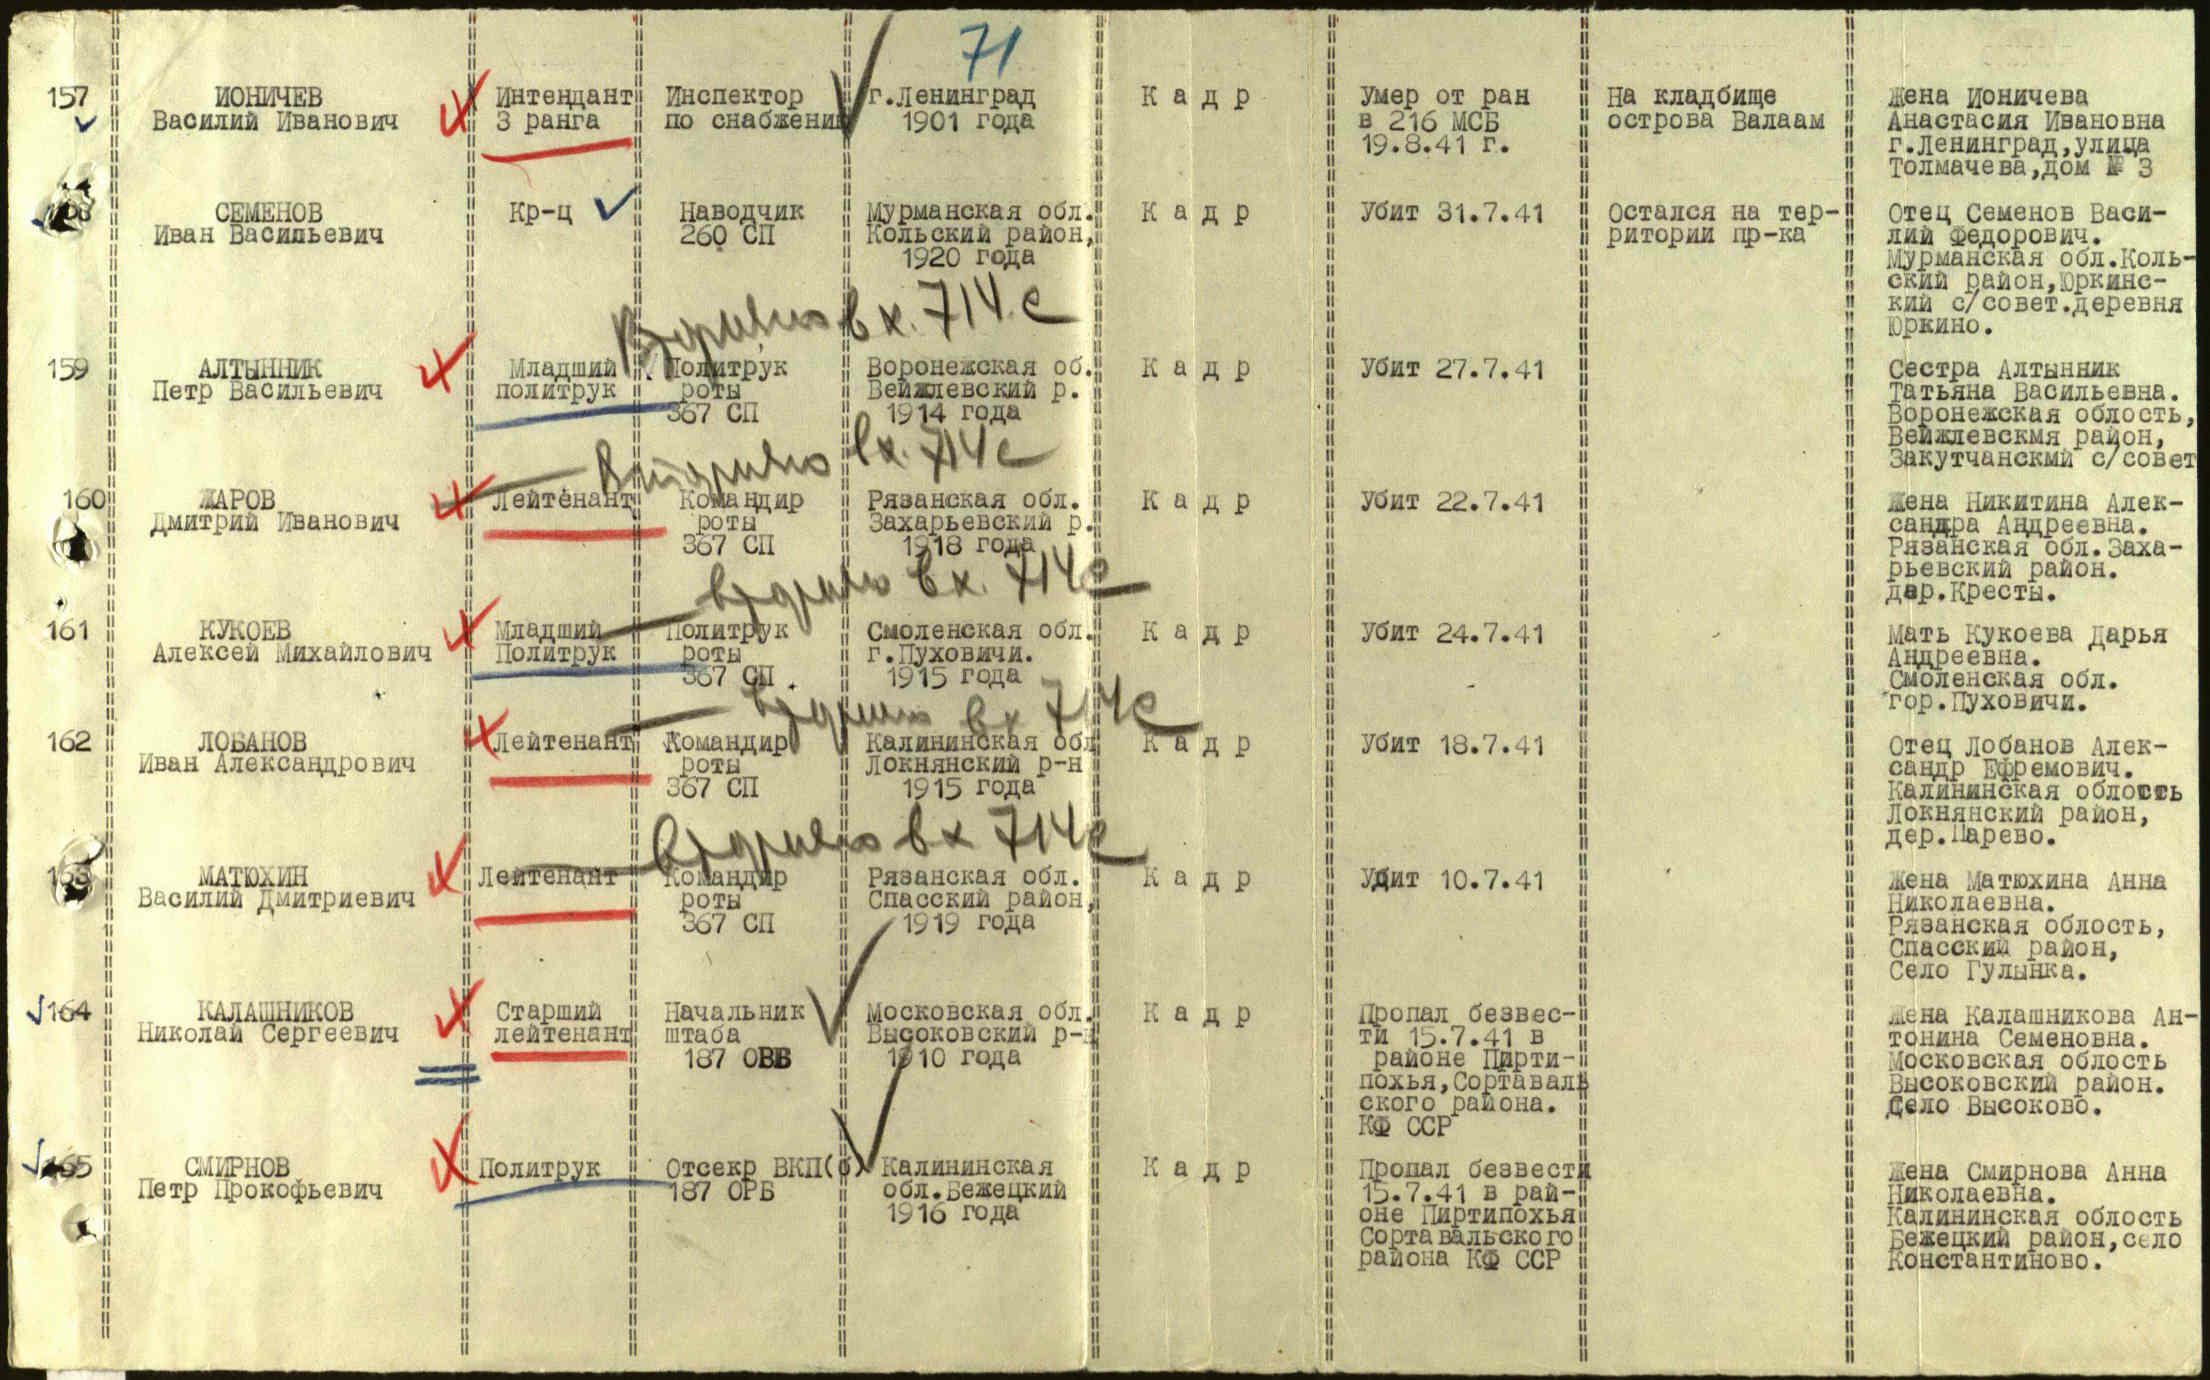 71
157 ИОНИЧЕВ Интендант Инспектор г.Ленинград К а д р Умер от ран На кладбище Жена Ионичева
Василий Иванович 3 ранга по снабжению 1901 года в 216 МСБ острова Валаам Анастасия Ивановна
19.8.41 г. г.Ленинград,улица
Толмачева,дом № 3
СЕМЕНОВ Кр-ц Наводчик Мурманская обл. К а д р Убит 31.7.41 Остался на тер- Отец Семенов Васи-
Иван Васильевич 260 СП Кольский район, ритории пр-ка лий Федорович.
1920 года Мурманская обл.Коль-
ский район,Юркинс-
кий с/совет.деревня
Юркино.
вх. 714с
159 АЛТЫННИК Младший Политрук Воронежская об. К а д р Убит 27.7.41 Сестра Алтынник
Петр Васильевич политрук роты Вейжлевский р. Татьяна Васильевна.
367 СП 1914 года Воронежская область,
Вейжлевскмя район,
Закутчанскмй с/совет
вх. 714с
160 ЖАРОВ Лейтенант Командир Рязанская обл. К а д р Убит 22.7.41 Жена Никитина Алек-
Дмитрий Иванович роты Захарьевский р. сандра Андреевна.
367 СП 1918 года Рязанская обл.Заха-
рьевский район.
дер.Кресты.
вх. 714с
161 КУКОЕВ Младший Политрук Смоленская обл. К а д р Убит 24.7.41 Мать Кукоева Дарья
Алексей Михайлович Политрук роты г.Пуховичи. Андреевна.
367 СП 1915 года Смоленская обл.
гор.Пуховичи.
вх 714с
162 ЛОБАНОВ Лейтенант Командир Калининская обл К а д р Убит 18.7.41 Отец Лобанов Алек-
Иван Александрович роты Локнянский р-н сандр Ефремович.
367 СП 1915 года Калининская область
Локнянский район,
дер.Царево.
вх 714с
163 МАТЮХИН Лейтенант Командир Рязанская обл. К а д р Убит 10.7.41 Жена Матюхина Анна
Василий Дмитриевич роты Спасский район, Николаевна.
367 СП 1919 года Рязанская облость,
Спасский район,
Село Гулынка.
164 КАЛАШНИКОВ Старший Начальник Московская обл. К а д р Пропал безвес- Жена Калашникова Ан-
Николай Сергеевич лейтенант штаба Высоковский р-н ти 15.7.41 в тонина Семеновна.
187 ОВБ 1910 года районе Пирти- Московская облость
похья,Сортаваль Высоковский район.
ского района. Село Высоково.
КФ ССР
165 СМИРНОВ Политрук Отсекр ВКП(б) Калининская К а д р Пропал безвести Жена Смирнова Анна
Петр Прокофьевич 187 ОРБ обл.Бежецкий 15.7.41 в рай- Николаевна.
1916 года оне Пиртипохья Калининская облость
Сортавальского Бежецкий район,село
района КФ ССР Константиново.